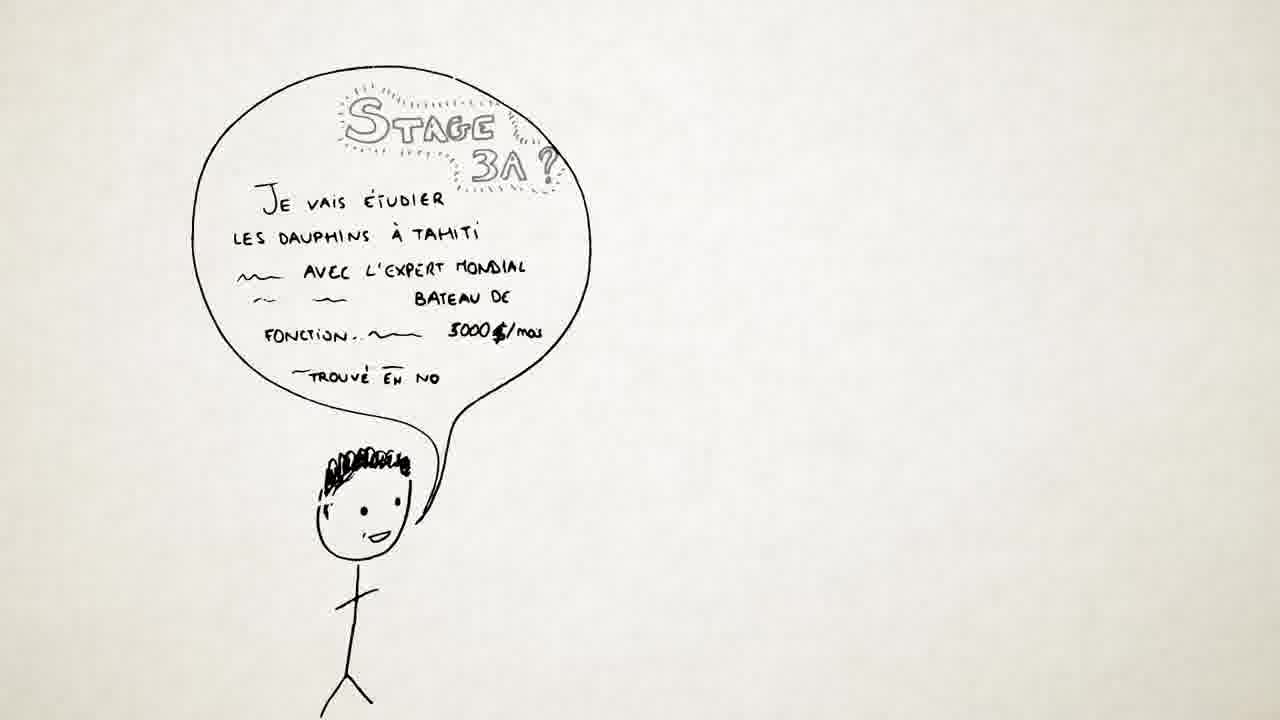 STAGE
3A ?
JE VAIS ÉTUDIER
LES DAUPHINS À TAHITI
AVEC L'EXPERT MONDIAL
BATEAU DE
FONCTION.. 5000 $/mois
TROUVÉ EN NO